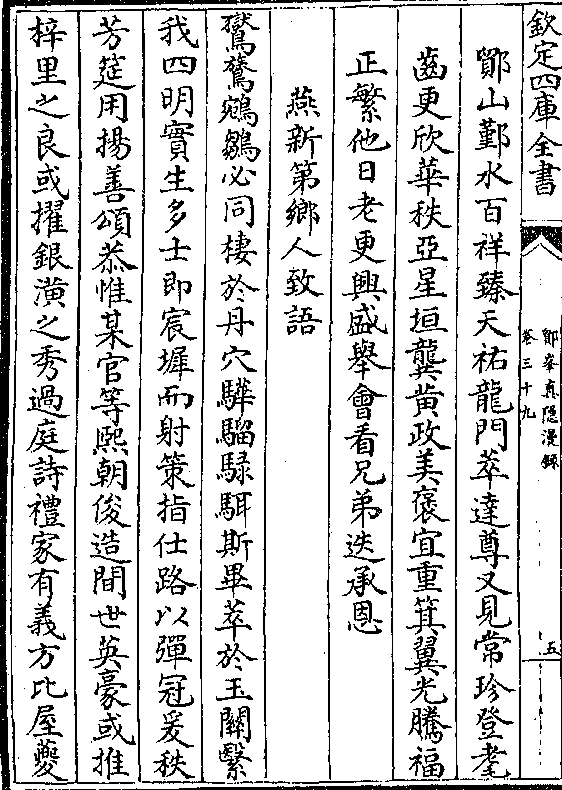 欽定四庫全書
鄮峯真隱漫錄
卷三十九
五
鄮山鄞水百祥臻天祐龍門萃達尊又見常珍登耄
齒更欣華秩亞星垣龔黄政美褒宜重箕翼光騰福
正繁他日老更興盛舉會看兄弟迭承恩
燕新第鄉人致語
鸑鷟鵷鶵必同棲於丹穴驊騮騄駬斯畢萃於玉關繫
我四明實生多士即宸墀而射策指仕路以彈冠爰秩
芳筵用揚善頌恭惟某官等熙朝俊造間世英豪或推
梓里之良或擢銀潢之秀過庭詩禮家有義方比屋夔